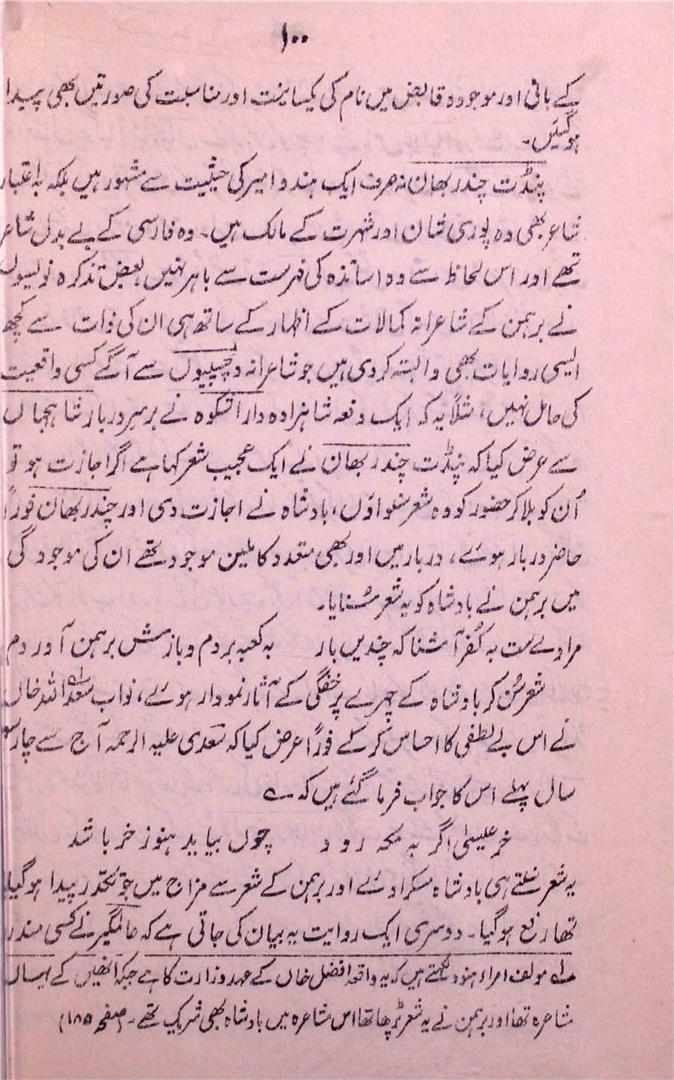 ۱۰۰
کے بانی اور موجودہ قابض میں نام کی یکسانیت اور مناسبت کی صورتیں بھی پیدا
ہوگئیں۔
پنڈت چندر بھان نہ صرف ایک ہندو امیر کی حیثیت سے مشہور ہیں بلکہ بہ اعتبار
شاعر بھی وہ پوری شان اور شہرت کے مالک ہیں۔ وہ فارسی کے بے بدل شاعر
تھے اور اس لحاظ سے وہ اساتذہ کی فہرست سے باہر نہیں، بعض تذکرہ نویسوں
نے برہمن کے شاعرانہ کمالات کے اظہار کے ساتھ ہی ان کی ذات سے کچھ
ایسی روایات بھی وابستہ کردی ہیں جو شاعرانہ دلچسپیوں سے آگے کسی واقعیت
کی حامل نہیں، مثلاً یہ کہ ایک دفعہ شاہزادہ دارا شکوہ نے برسرِ دربار شاہجہاں
سے عرض کیا کہ پنڈت چندر بھان نے ایک عجیب شعر کہا ہے اگر اجازت ہو تو
اُن کو بلا کر حضور کو وہ شعر سنواؤں، بادشاہ نے اجازت دی اور چندر بھان فوراً
حاضر دربار ہوئے، دربار میں اور بھی متعدد کاملین موجود تھے ان کی موجودگی
میں برہمن نے بادشاہ کو یہ شعر سُنایا۔
مرا دلے ست بہ کُفر آشنا کہ چندیں بار بہ کعبہ بردم و بازش برہمن آوردم
شعر سُن کر بادشاہ کے چہرے پر خفگی کے آثار نمودار ہوئے، نواب سعد اللہ خاںؔ
نے اس بے لطفی کا احساس کرکے فوراً عرض کیا کہ سعدی علیہ الرحمہ آج سے چار سو
سال پہلے اس کا جواب فرما گئے ہیں کہ ؎
خرِ عیسیٰ اگر بہ مکہ رود چوں بیاید ہنوز خر باشد
یہ شعر سنتے ہی بادشاہ مسکرا دئے اور برہمن کے شعر سے مزاج میں جو تکدّر پیدا ہوگیا
تھا رفع ہوگیا۔ دوسری ایک روایت یہ بیان کی جاتی ہے کہ عالمگیر نے کسی مندر
مولف امراء ہنود لکھتے ہیں کہ یہ واقعہ افضل خاں کے عہد وزارت کا ہے جبکہ انھیں کے یہاں
مشاعرہ تھا اور برہمن نے یہ شعر پڑھا تھا اس مشاعرہ میں بادشاہ بھی شریک تھے۔ (صفحہ ۱۸۵)